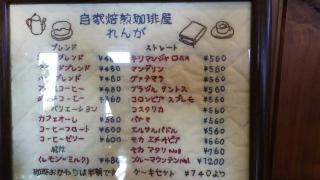 自家焙煎珈琲屋
れんが
ブレンド
ブレンド ¥480
ブレンド ¥480
ブレンド ¥480
コーヒー ¥480
コーヒー ¥560
バリエーション
カフェオーレ ¥560
コーヒーフロート ¥600
コーヒーゼリー ¥560
紅茶
(レモン・ミルク) ¥480
珈琲おかわりは半額です
ストレート
キリマンジャロAA ¥560
マンデリン ¥560
グァテマラ ¥560
ブラジル サントス ¥560
コロンビア スプレモ ¥560
コスタリカ ¥560
パナマ ¥560
エルサルバドル ¥560
モカ エチオピア ¥660
モカ マタリ No.9 ¥760
ブルーマウンテンNo.1 ¥1200
ケーキセット ¥740より